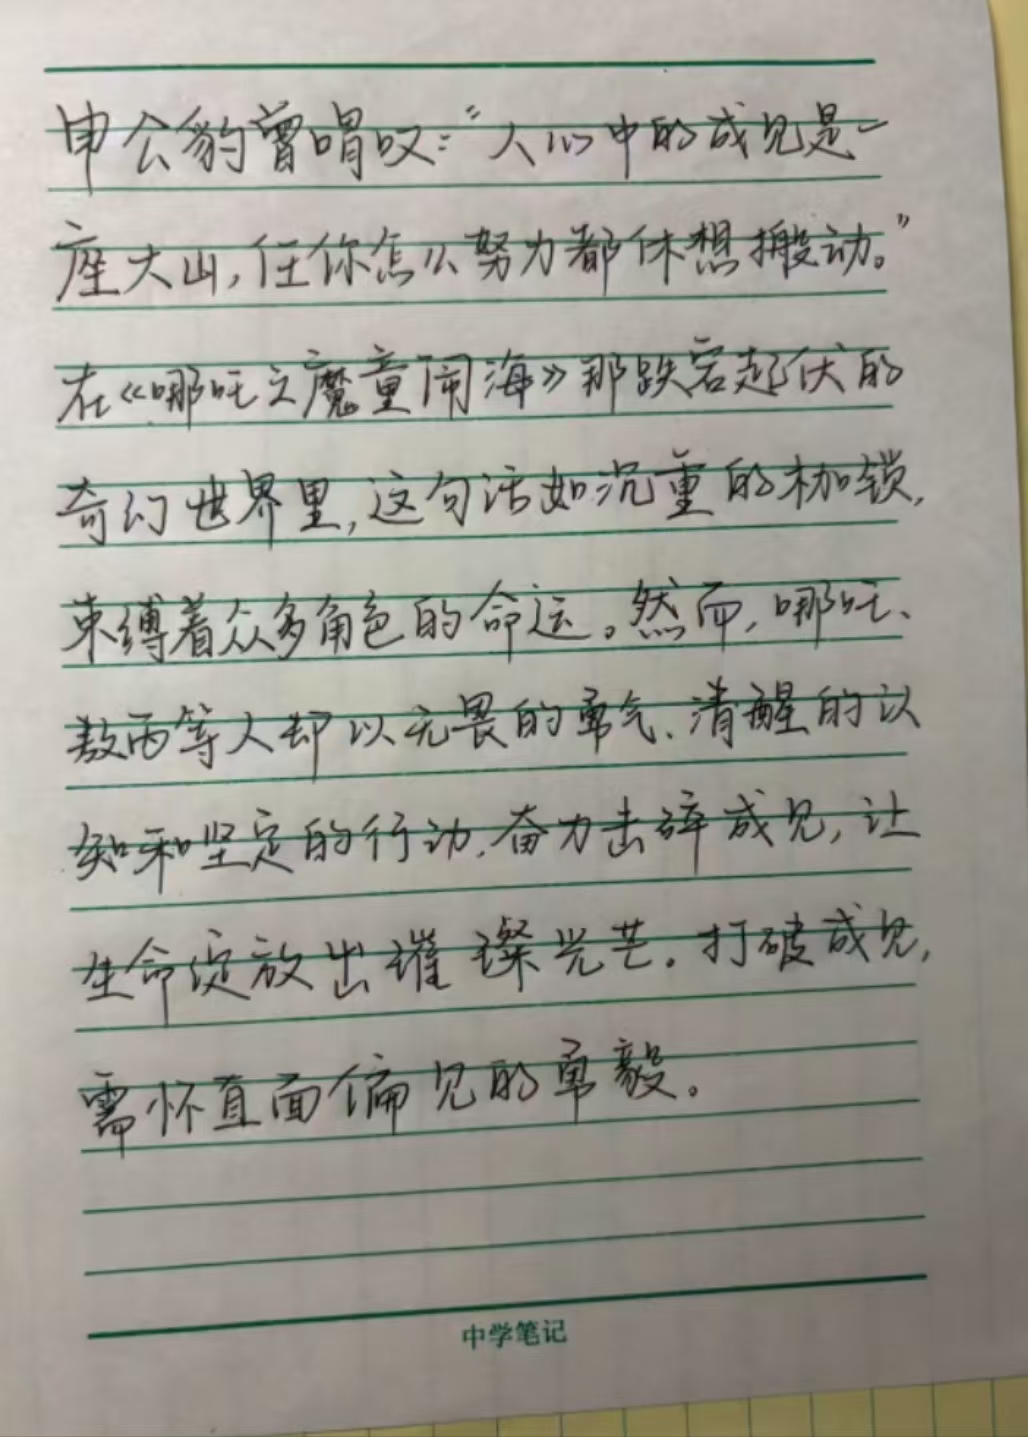 申公豹曾喟叹:“人心中的成见是一
座大山,任你怎么努力都休想搬动。”
在《哪吒之魔童闹海》那跌宕起伏的
奇幻世界里,这句话如沉重的枷锁,
束缚着众多角色的命运。然而,哪吒、
敖丙等人却以无畏的勇气、清醒的认
知和坚定的行动,奋力击碎成见,让
生命绽放出璀璨光芒。打破成见,
需怀直面偏见的勇毅。
中学笔记